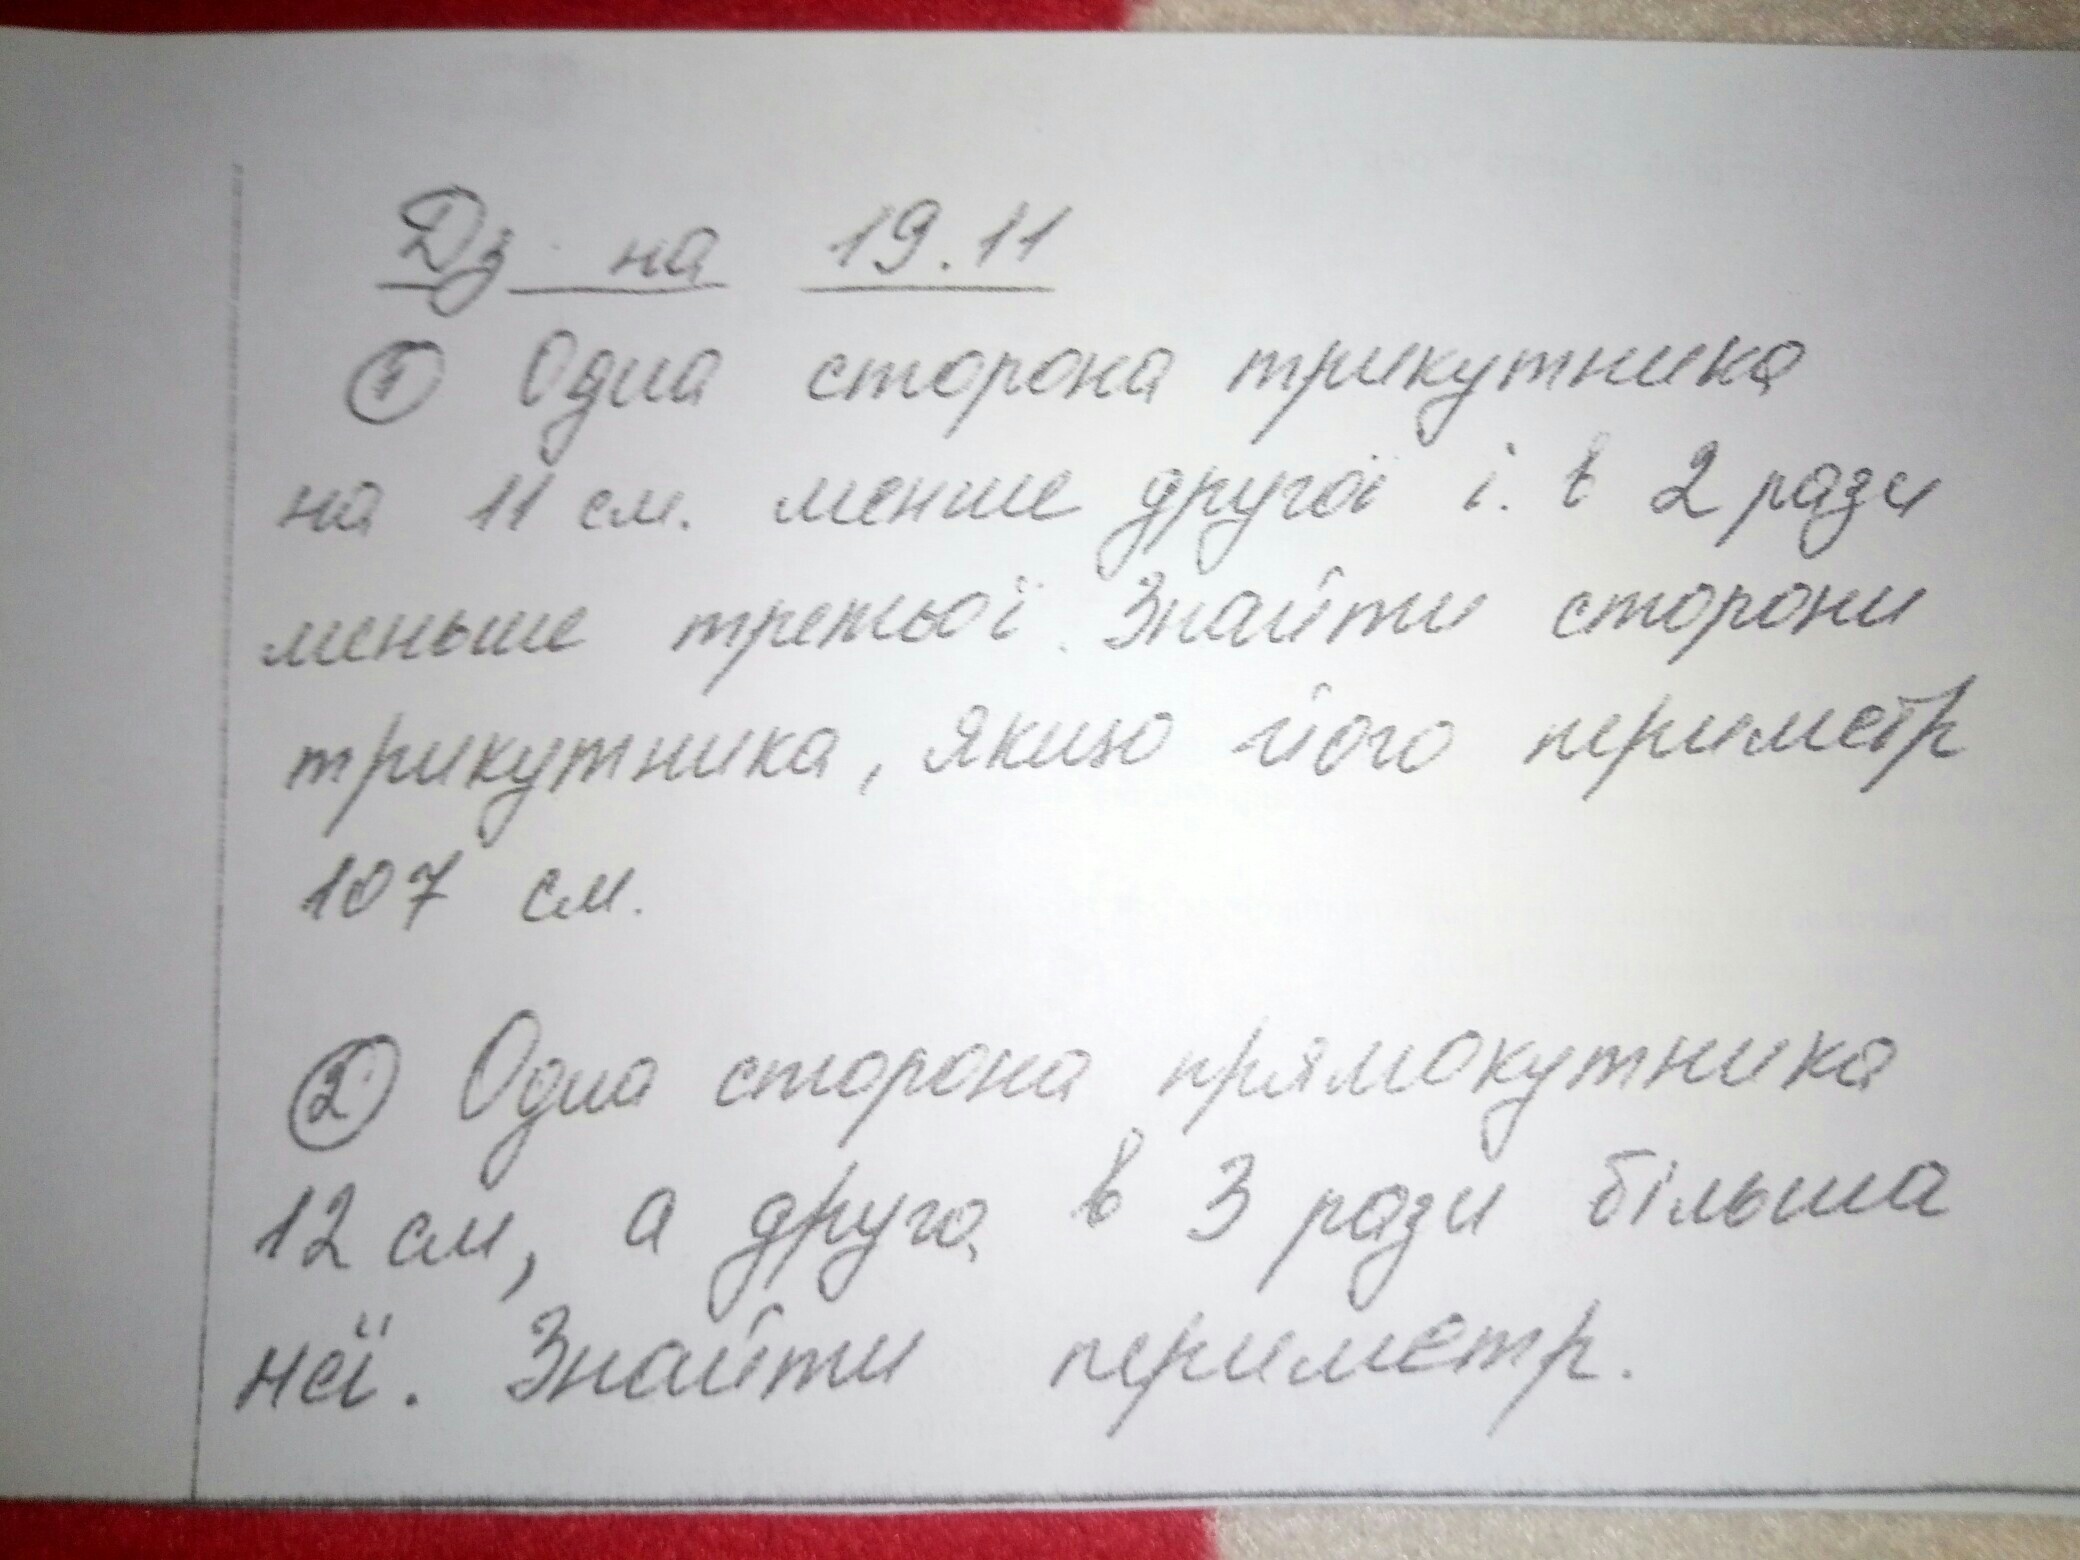 Дз на 19.11
① Одна сторона трикутника
на 11 см. менше другої і. в 2 рази
меньше третьої. Знайти сторони
трикутника, якщо його периметр
107 см.
② Одна сторона прямокутника
12 см, а друга в 3 рази більша
неї. Знайти периметр.